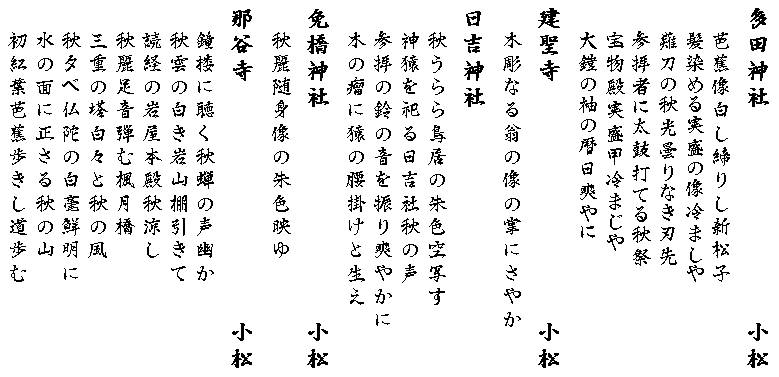 多田神社 小松
芭蕉像白し締りし新松子
髪染める実盛の像冷ましや
薙刀の秋光曇りなき刃先
参拝者に太鼓打てる秋祭
宝物殿実盛甲冷まじや
大鎧の袖の暦日爽やに
建聖寺 小松
木彫なる翁の像の掌にさやか
日吉神社
秋うらら鳥居の朱色空写す
神猿を祀る日吉社秋の声
参拝の鈴の音を振り爽やかに
木の瘤に猿の腰掛けと生え
免橋神社 小松
秋麗随身像の朱色映ゆ
那谷寺 小松
鐘楼に聴く秋蝉の声幽か
秋雲の白き岩山棚引きて
読経の岩屋本殿秋涼し
秋麗足音弾む楓月橋
三重の塔白々と秋の風
秋夕べ仏陀の白毫鮮明に
水の面に正さる秋の山
初紅葉芭蕉歩きし道歩む